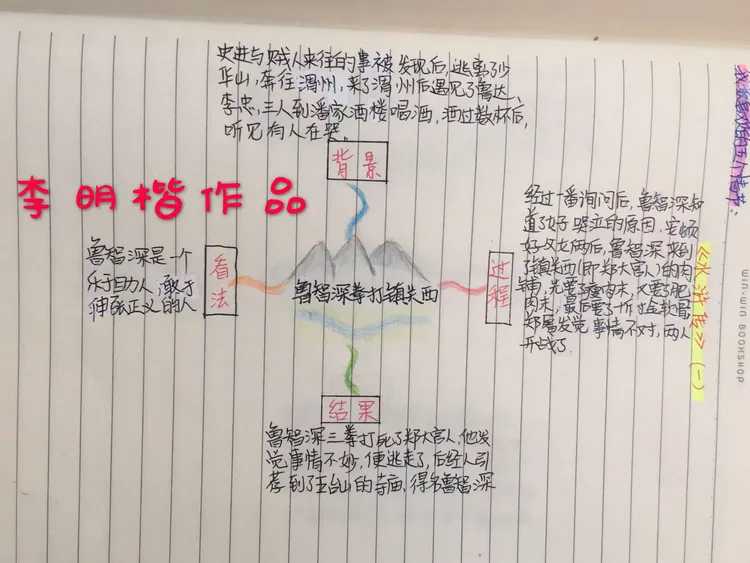 史进与贼人来往的事被发现后,逃离了少
华山,奔往渭州,来了渭州后遇见了鲁达、
李忠,三人到潘家酒楼喝酒,酒过数杯后,
听见有人在哭。
背景
李明楷作品
鲁智深是一个
乐于助人,敢于
伸张正义的人
看法
鲁智深拳打镇关西
过程
经过一番询问后,鲁智深知
道了女子哭泣的原因,安顿
好父女俩后,鲁智深来到
了镇关西(即郑大官人)的肉
铺,先要了瘦肉末,又要了肥
肉末,最后要了一斤寸金软骨
郑屠发觉事情不对,两人
开战了
结果
鲁智深三拳打死了郑大官人,他发
觉事情不妙,便逃走了,后经人引
荐到了五台山的寺庙,得名鲁智深
《水浒传》(一)
WIN-WIN BOOKSHOP